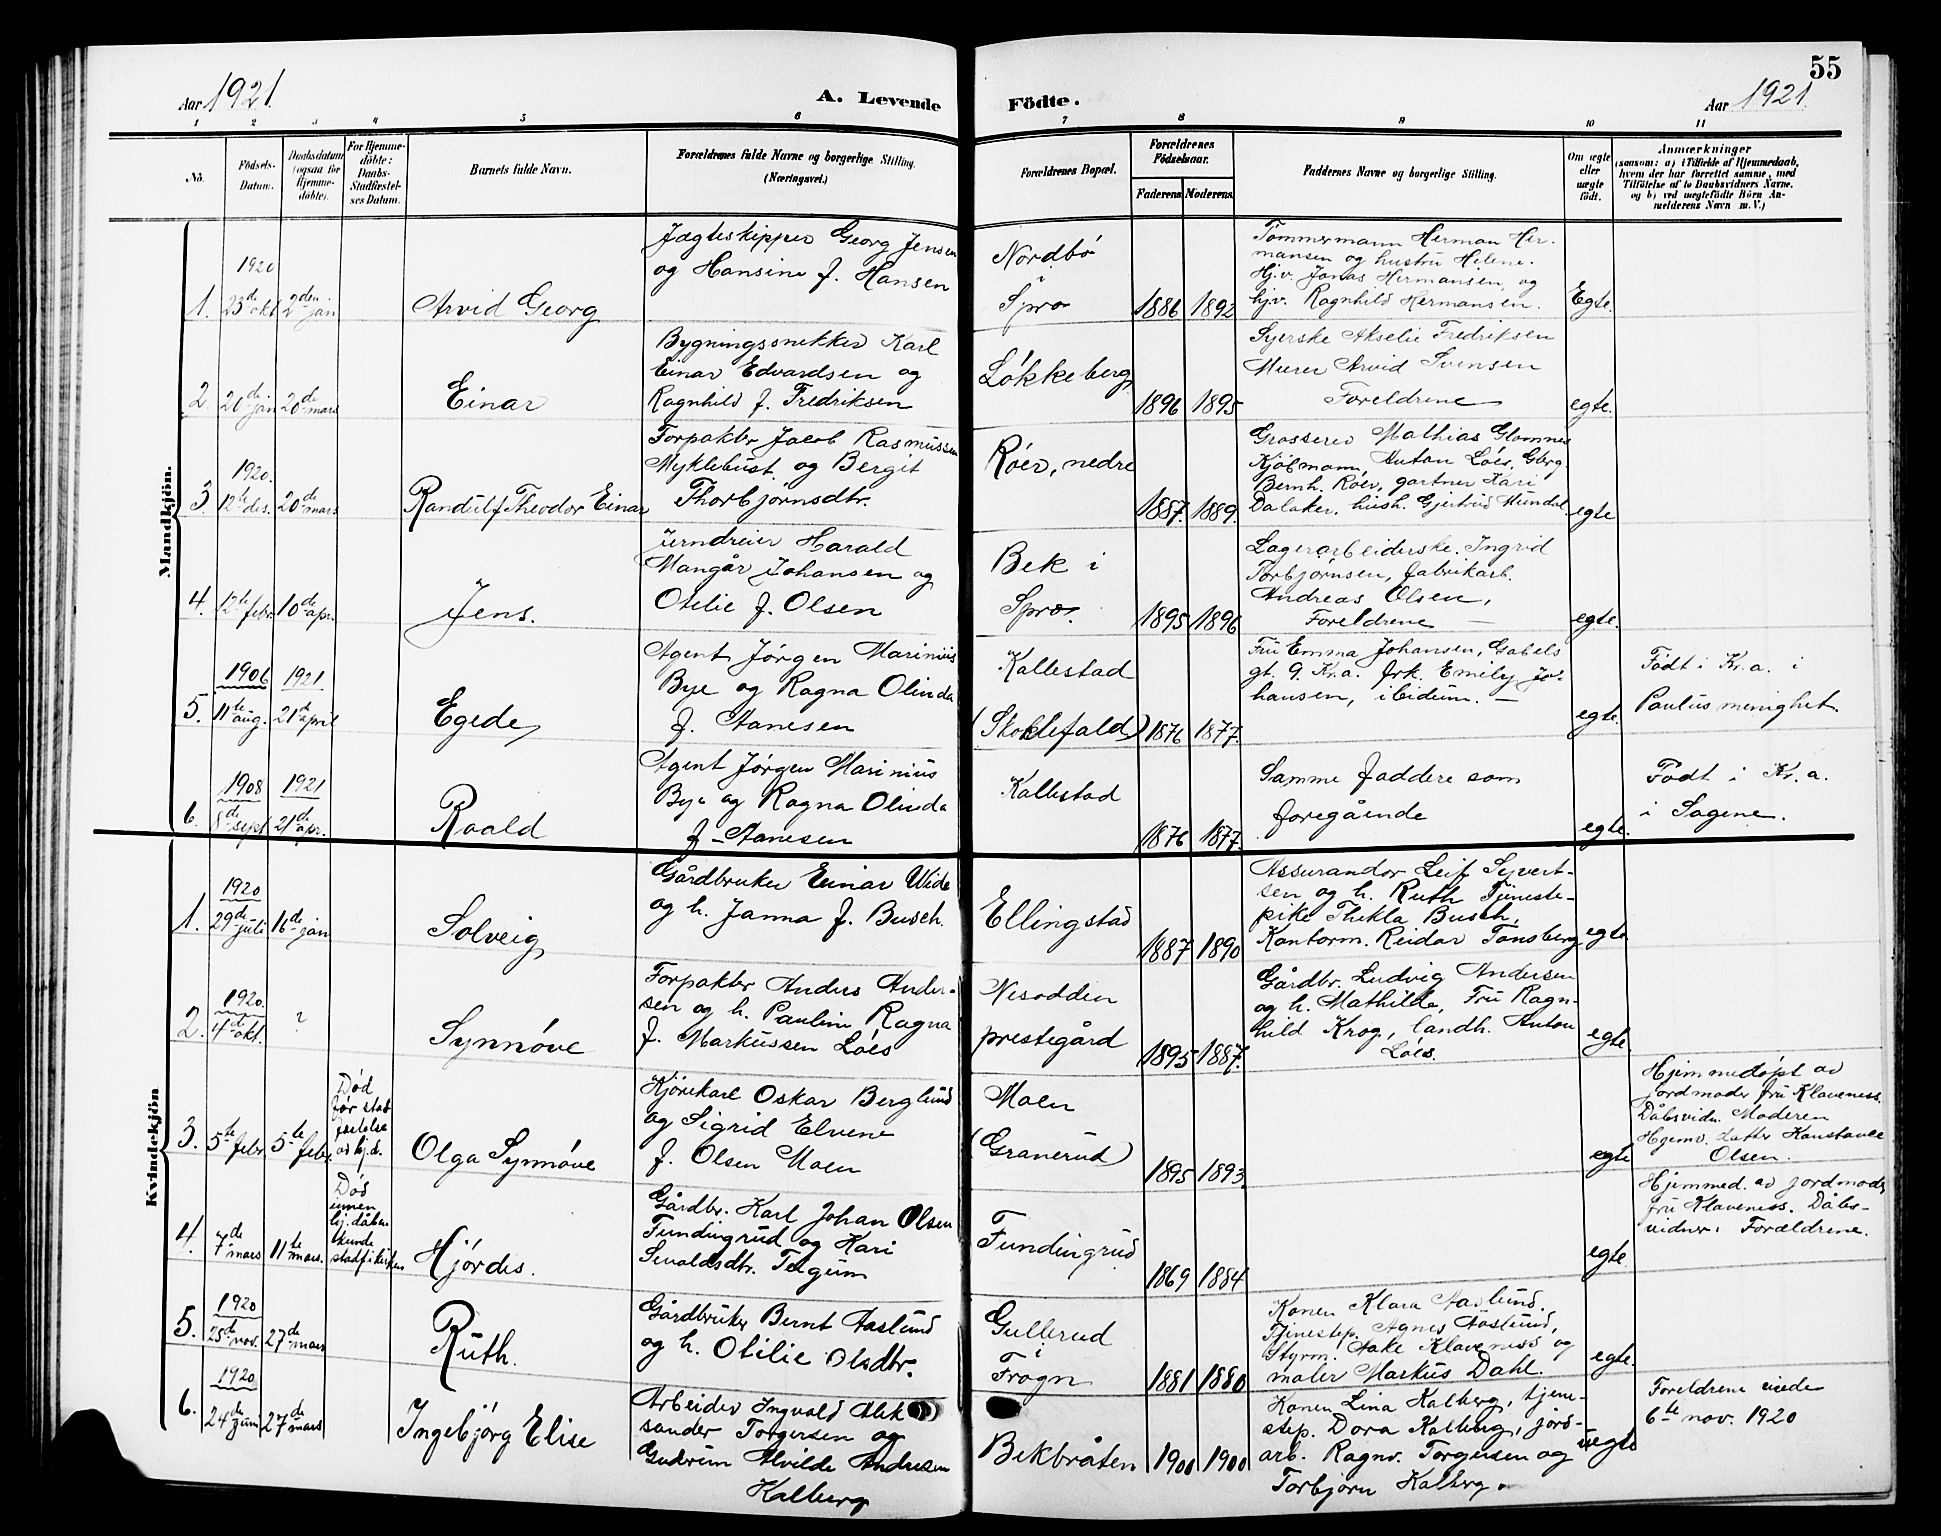 55
Aar 1921.
A. Levende
Födte.
Aar 1921
1 2 3 4 5 6 7 8 9 10 11
No.
Födsels-
Datum.
Daabsdatum
(ogsaa for
Hjemme-
döbte).
For Hjemme-
döbte:
Daabs-
Stadfæstel-
ses Datum.
Barnets fulde Navn.
Forældrenes fulde Navne og borgerlige Stilling.
(Næringsvei.)
Forældrenes Bopæl.
Forældrenes
Födselsaar.
Faderens
Moderens
Faddernes Navne og borgerlige Stilling.
Om ægte
eller
uægte
født.
Anmærkninger
(saasom: a) i Tilfælde af Hjemmedaab,
hvem der har forrettet samme, med
Tilføielse af to Daabsvidners Navne,
og b) ved uægtefødte Börn An-
melderens Navn m. V.)
Mandkjön.
1.
1920
23de okt
2den jan
Arvid Georg
Jægteskipper Georg Jensen
og Hansine f. Hansen
Nordbø
i
Spro
1886
1892
Tømmermann Herman Her-
mansen og hustru Helene.
Hj.v. Jonas Hermansen, og
hjv. Ragnhild Hermansen.
Egte.
2.
20de jan
20de mars
Einar
Bygningssnekker Karl
Einar Edvardsen og
Ragnhild f. Fredriksen
Løkkeberg
1896
1895
Syerske Akselie Fredriksen
Murer Arvid Svensen
Foreldrene
egte.
3
1920.
12te des.
20de mars
Randulf Theodor Einar
Forpakter Jacob Rasmussen
Myklebust og Bergit
Thorbjørnsdtr.
Róer, nedre
1887.
1889.
Grosserer Mathias Glomnes
Kjøbmann, Anton Lóes, Gbrg.
Bernh. Róer, gartner Kari
Dalaker, hush. Gjertrud Mundal
egte
4.
12te febr.
10de apr.
Jens.
Jerndreier Harald
Mangår Johansen og
Otilie f. Olsen
Bek i
Spro.
1895
1896
Lagerarbeiderske Ingrid
Torbjørnsen, fabrikarb.
Andreas Olsen,
Foreldrene
egte.
5.
1906
11te aug.
1921
21de april
Egede
Agent Jørgen Marinius
Bye og Ragna Olinda
f. Aanesen
Kallestad
(Skoklefald)
1876
1877.
Fru Emma Johansen, Gabels
gt. 9. Kr.a. frk. Emily Jo-
hansen, ibidum.
egte.
Født i Kr.a. i
Paulus menighet.
6.
1908
8de sept
1921
21de apr.
Roald
Agent Jørgen Marinius
Bye og Ragna Olinda
f. Aanesen
Kallestad
1876
1877.
Samme faddere som
foregående
egte.
Født i Kr.a.
i Sagene.
Kvindekjön
1.
1920
29de juli
16de jan
Solveig
Gårdbruker Einar Ulide
og h. Janna f. Busch.
Ellingstad
1887
1890
Assurandør Leif Syvert-
sen og h. Ruth Tjeneste-
pike Thekla Busch,
Kontorm. Reidar Tønsberg
egte.
2.
1920.
4de okt.
?
Synnøve
Forpakter Anders Ander-
sen og h. Pauline Ragna
f. Markussen Lóes
Nesodden
prestegård
1895
1887.
Gårdbr. Ludvig Andersen
og h. Mathilde, Fru Ragn-
hild Krog, landh. Anton
Lóes.
egte.
3.
5te febr
5te febr.
Død
før stad
festelse
av hj.d.
Olga Synnøve
Kjørekarl Oskar Berglund
og Sigrid Elvene
f. Olsen Moen
Moen
(Granerud)
1895
1893.
egte
Hjemmedøpt av
jordmoder fru Klaveness.
Dåbsvidn. Moderen
Hgemv. Datter Konstance
Olsen.
4.
7de mars
11te mars.
Død
innen
hj. dåben
kunde
stadf. i kirken
Hjørdis.
Gårdbr. Karl Johan Olsen
Fundingrud og Kari
Sevaldsdtr. Teigum
Fundingrud
1869
1884
egte
Hjemmed. av jordmoder
fru Klaveness. Dåbs-
vidner: Forældrene.
5.
1920
25de nov.
27de mars
Ruth.
Gårdbruker Bernt Aaslund
og h. Otilie Olsdtr.
Gullerud
i
Frogn
1881
1880
Konen Klara Aaslund.
Tjenestep. Agnes Aaslund,
Styrm. Aake Klaveness og
maler Markus Dahl.
egte.
6.
1920
24de juni
27de mars
Ingebjørg Elise
Arbeider Ingvald Alek
sander Torgersen og
Gudrun Alvilde Andresen
Kalberg
Bekbråten
1900
1900
Konen Lina Kalberg, tjene-
step. Dora Kalberg, jors-
arb. Ragnv. Torgersen og
Torbjørn Kalberg.
uegte
Foreldrene viede
6te nov. 1920